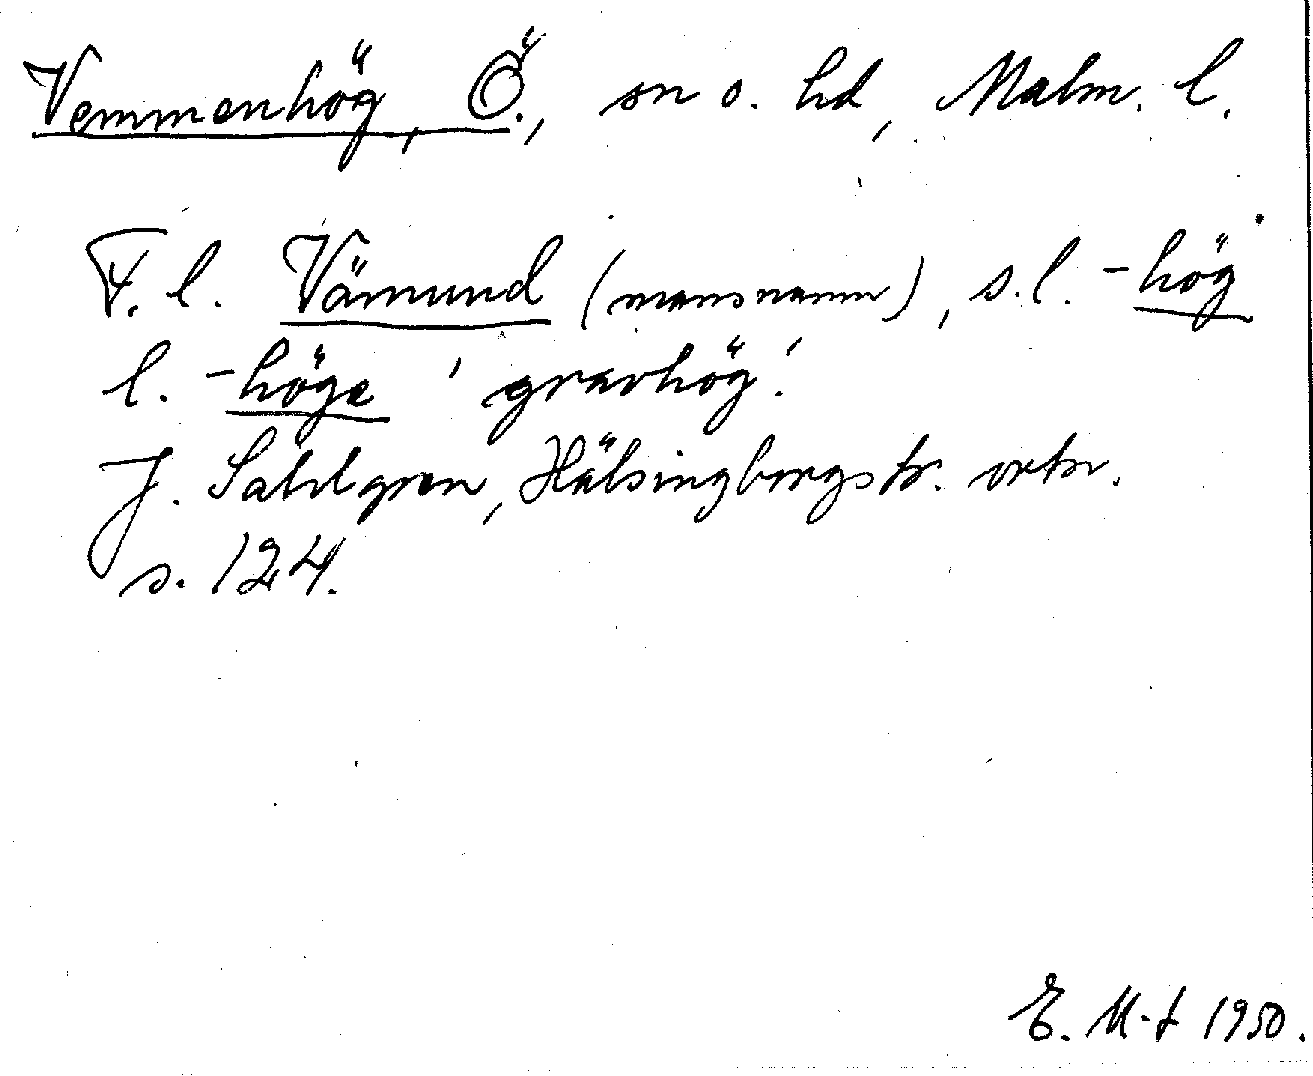 Vemmenhög, Ö., sn o. hd, Malm. l.
F. l. Vämund (mansnamn), s.l. -hög
l. -höge 'gravhög'.
J. Sahlgren, Hälsingborgstr. ortn.
s. 124.
E. M-t 1950.